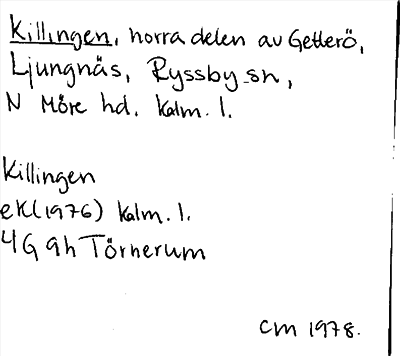 Killingen, norra delen av Getterö,
Ljungnäs, Ryssby sn,
N Möre hd. Kalm. l.
Killingen
eK(1976) Kalm. l.
4G 9h Törnerum
CM 1978.